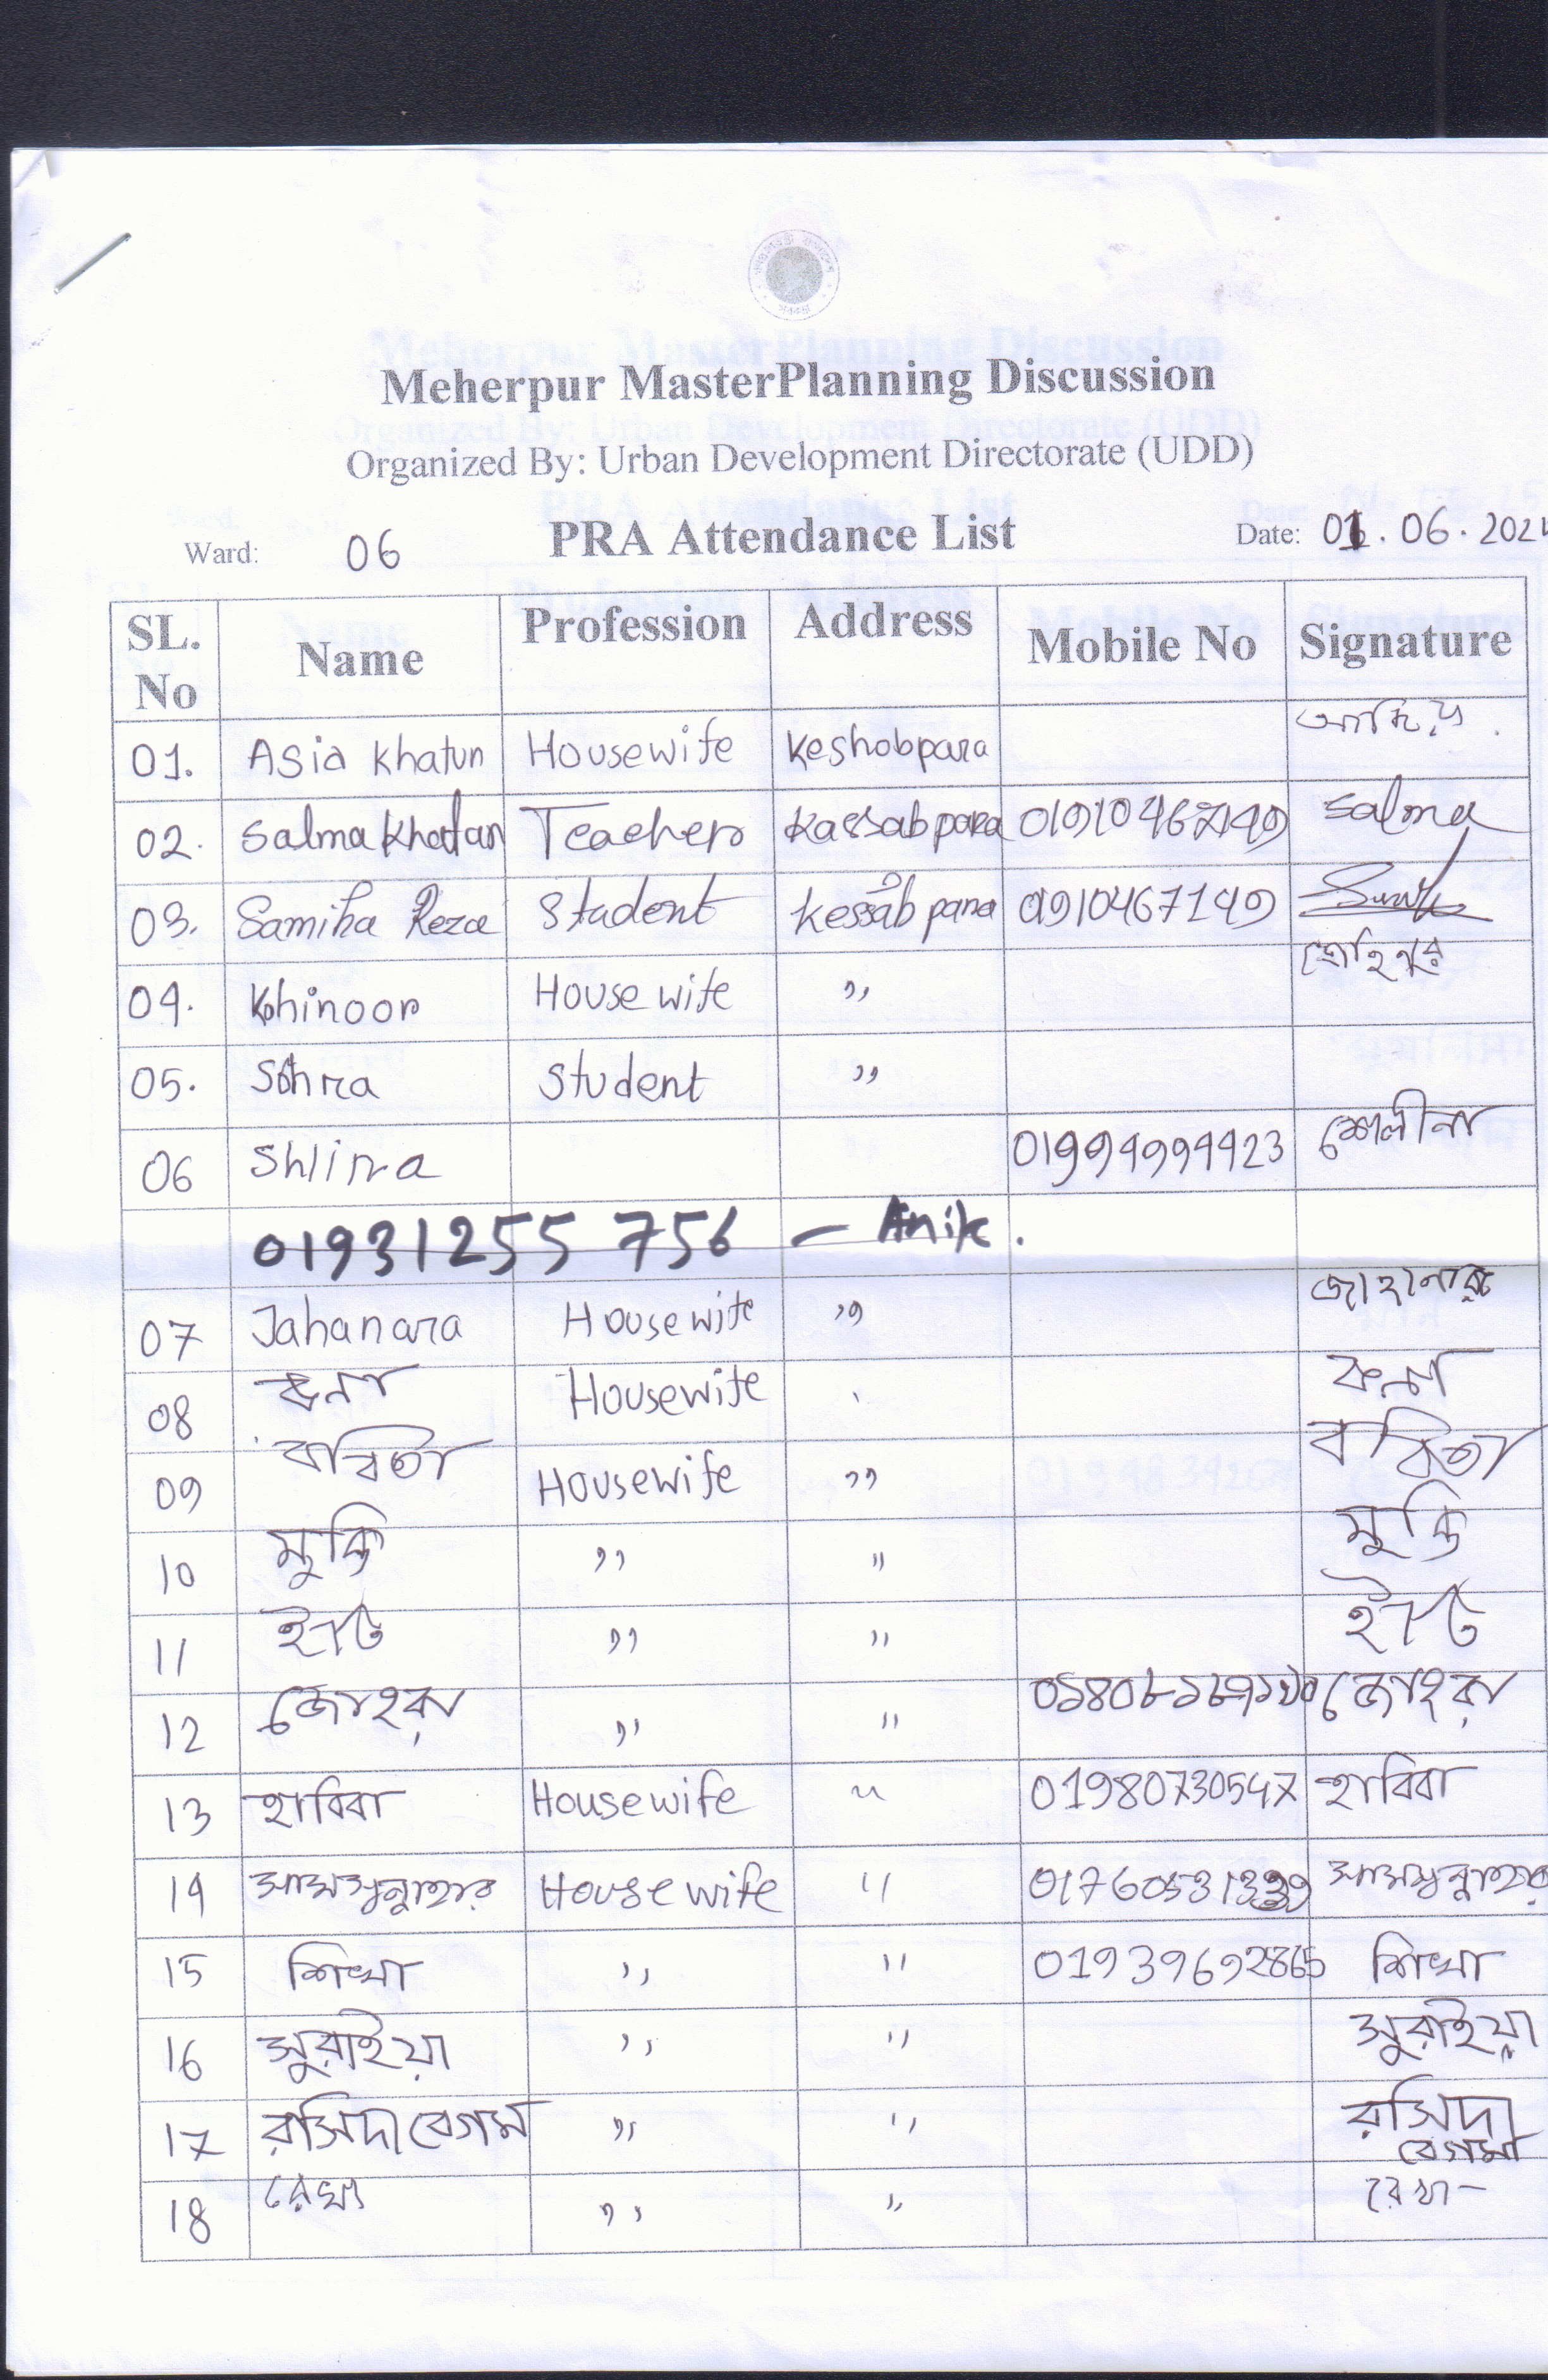 Meherpur MasterPlanning Discussion
Organized By: Urban Development Directorate (UDD)
Ward: 06 PRA Attendance List Date: 01.06.202
SL. No Name Profession Address Mobile No Signature
01. Asia Khatun Housewife Keshobpara
02. Salma Khatun Teacher Kassabpara 01910467149 Salma
03. Samiha Reza Student Kessabpara 01910467149
04. Kohinoor Housewife ,, কোহিনুর
05. Student ,,
06 Shlina 01994999923 শেলীনা
01931255 756 – Anik.
07 Jahanara Housewife ,, জাহানারা
08 Housewife
09 ববিতা Housewife ,, ববিতা
10 মুক্তি ,, ,, মুক্তি
11 ইতি ,, ,, ইতি
12 জোহরা ,, ,, জোহরা
13 হাবিবা Housewife ,, 01980730547 হাবিবা
14 সামসুন্নাহার Housewife ,, সামসুন্নাহার
15 শিখা ,, ,, 01939692865 শিখা
16 সুরাইয়া ,, ,, সুরাইয়া
17 রসিদা বেগম ,, ,, রসিদা বেগম
18 রেখা ,, ,, রেখা